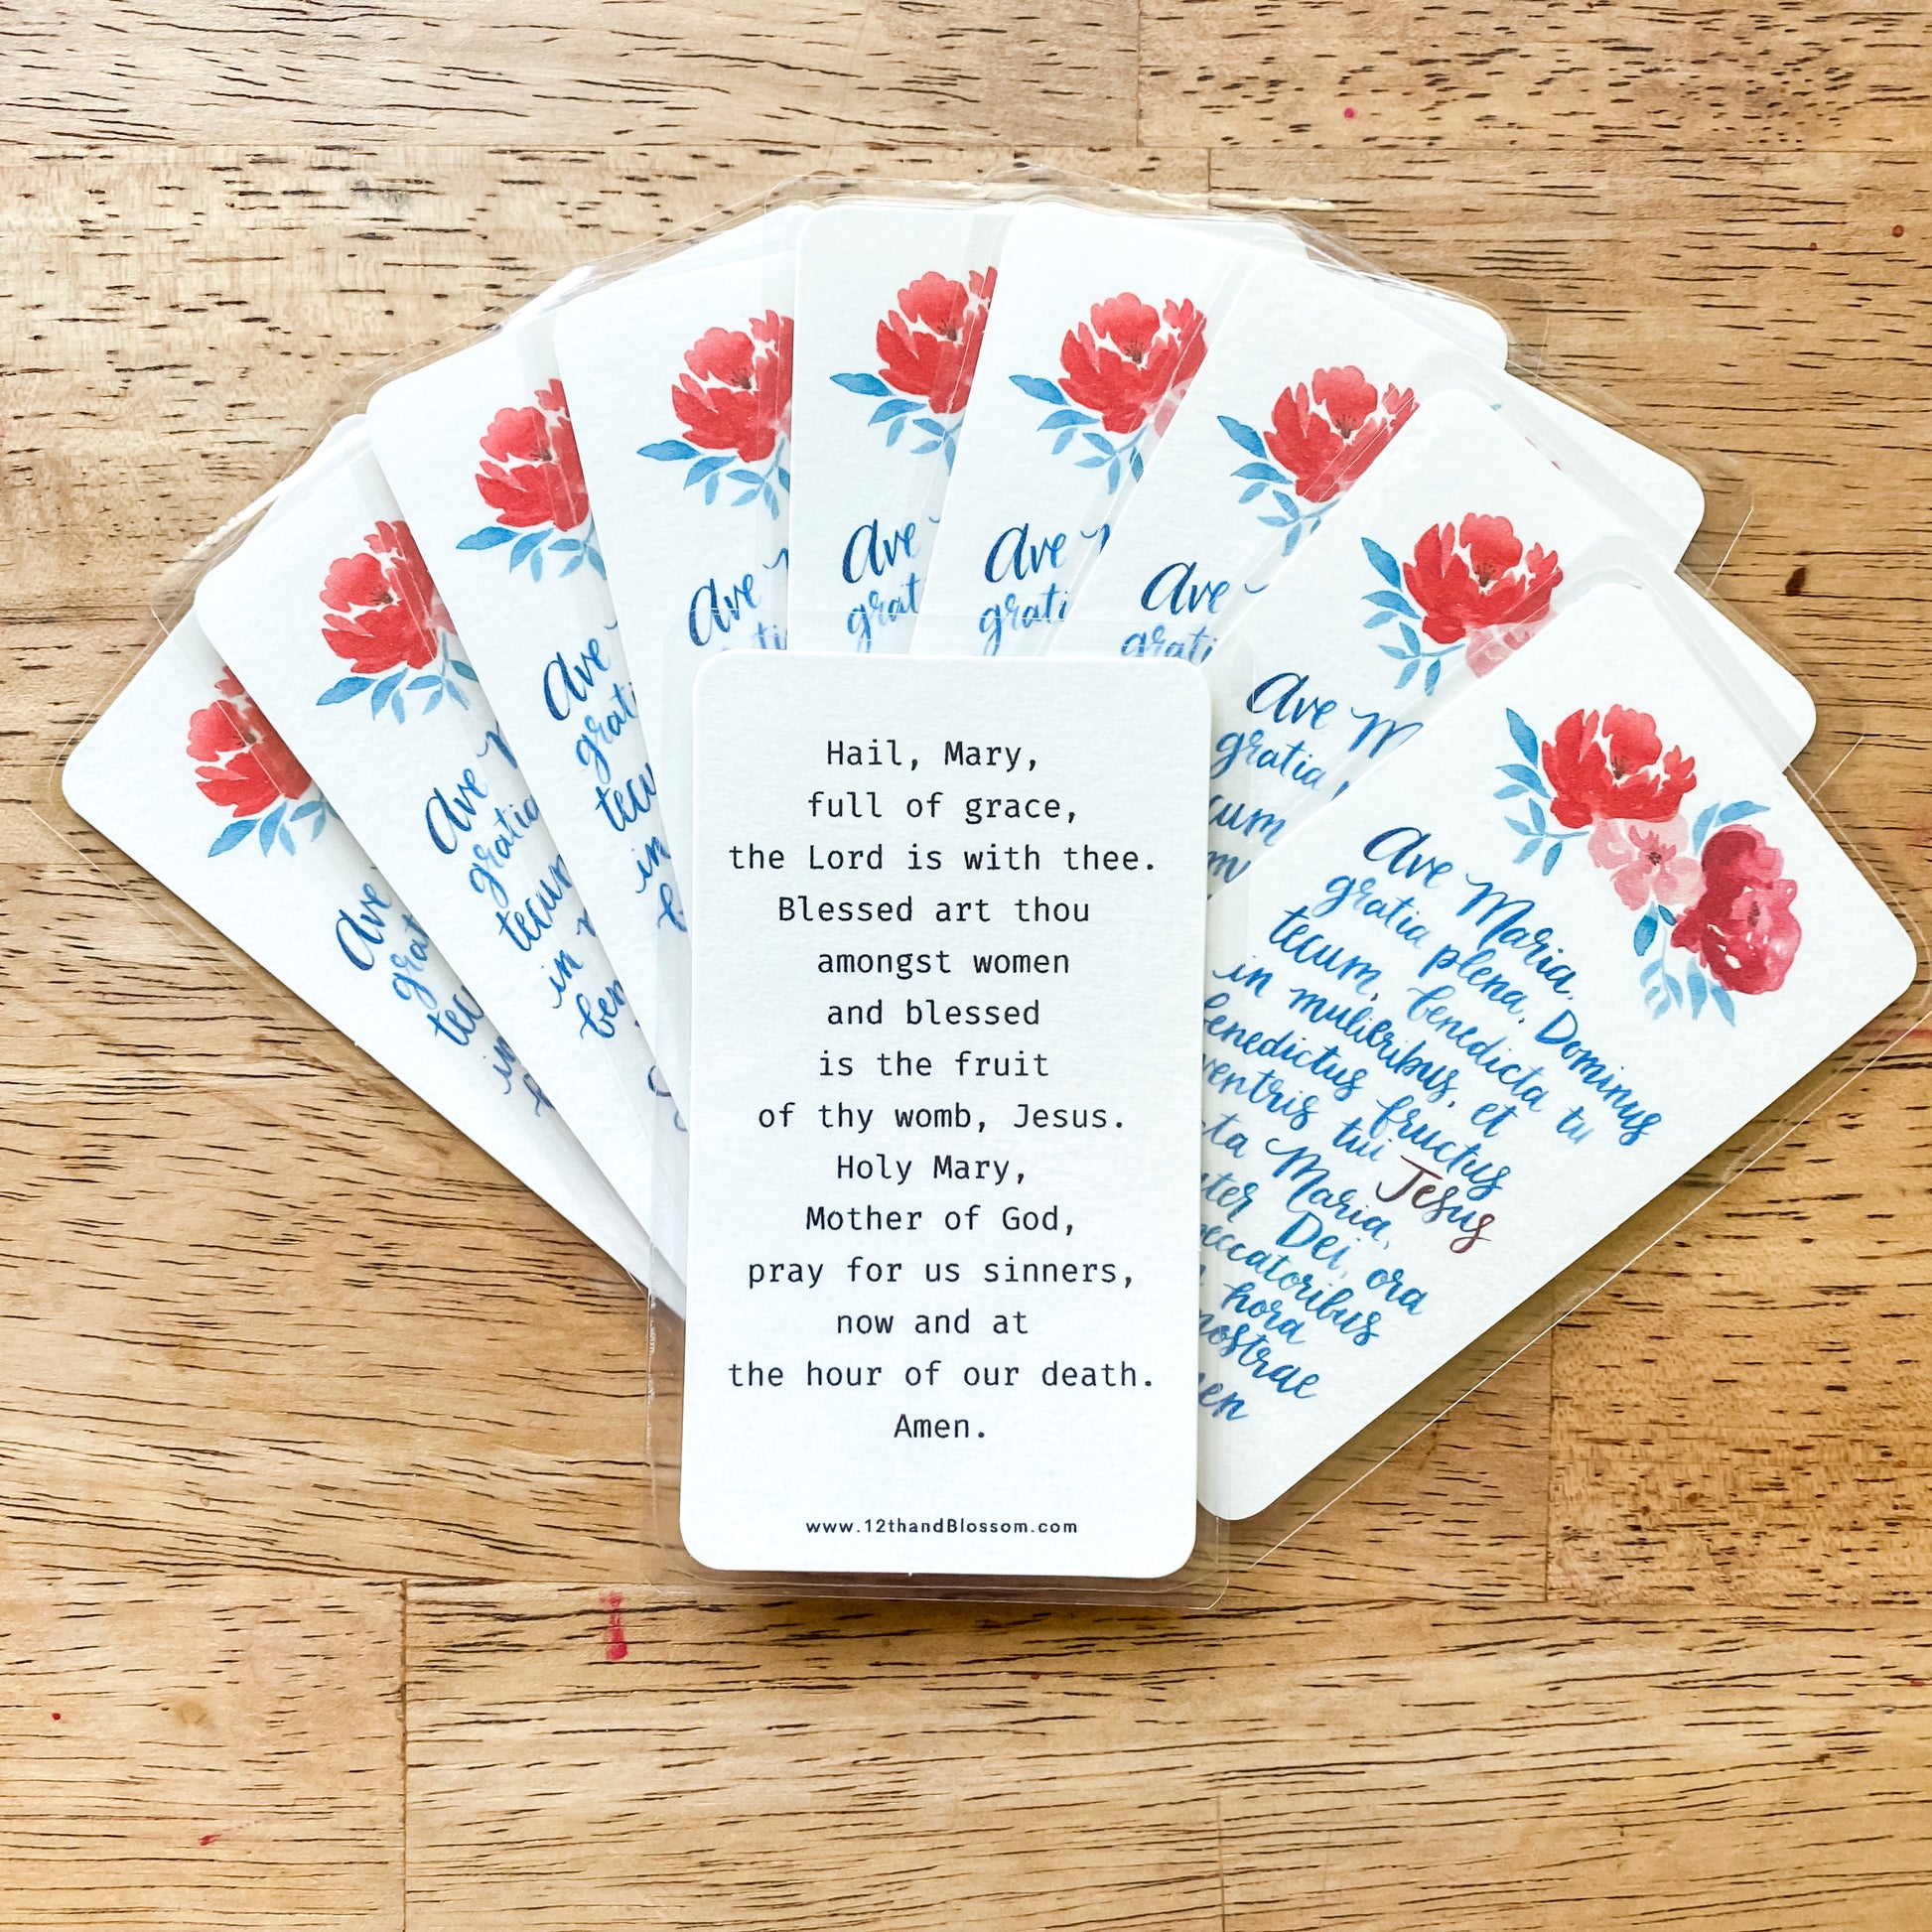 Hail, Mary,
full of grace,
the Lord is with thee.
Blessed art thou
amongst women
and blessed
is the fruit
of thy womb, Jesus.
Holy Mary,
Mother of God,
pray for us sinners,
now and at
the hour of our death.
Amen.
www.12thandBlossom.com
Ave Maria,
gratia plena, Dominus
tecum, benedicta tu
in mulieribus, et
benedictus fructus
ventris tui Jesus
Maria,
Dei, ora
peccatoribus
hora
nostrae
Ave
grat
tecu
in
Ave
gratia
tecum
in
ben
Ave
grat
tecu
in
Ave
Ave
grat
Ave
grati
Ave
grati
Ave M
gratia
cum